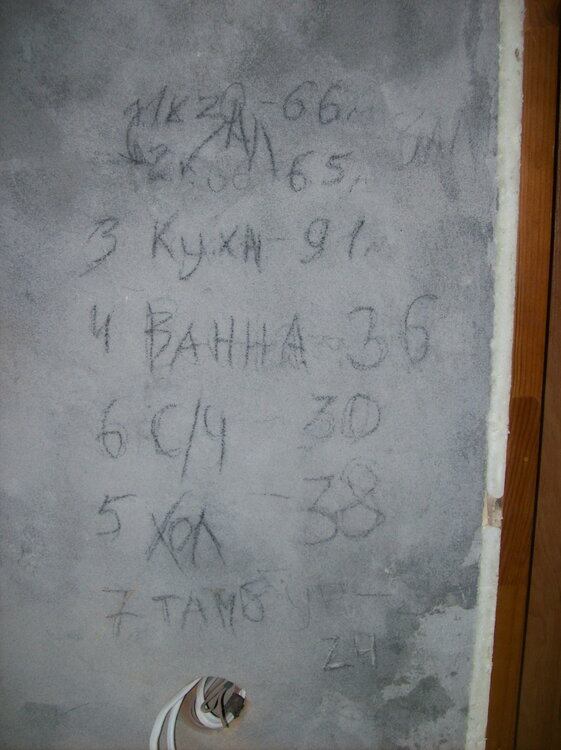 1к - 66
2к 65
3 Кухн - 91
4 ВАННА 36
6 С/У - 30
5 ХОЛ - 38
7 ТАМБУР -
24